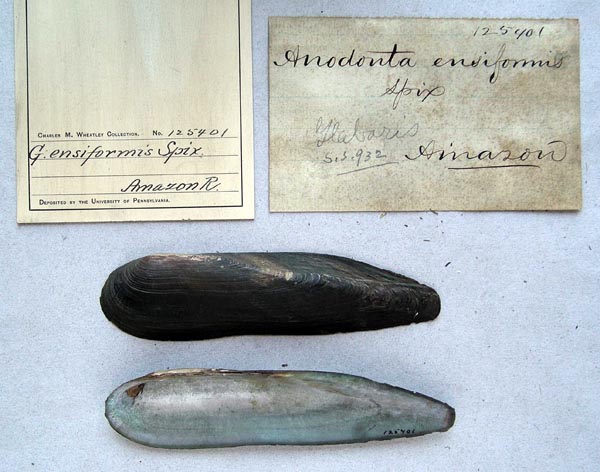 CHARLES M. WHEATLEY COLLECTION. No. 125401
G. ensiformis Spix.
Amazon R.
DEPOSITED BY THE UNIVERSITY OF PENNSYLVANIA.
125401
Anodonta ensiformis
Spix
Glabaris
S.S. 932 Amazon
125401